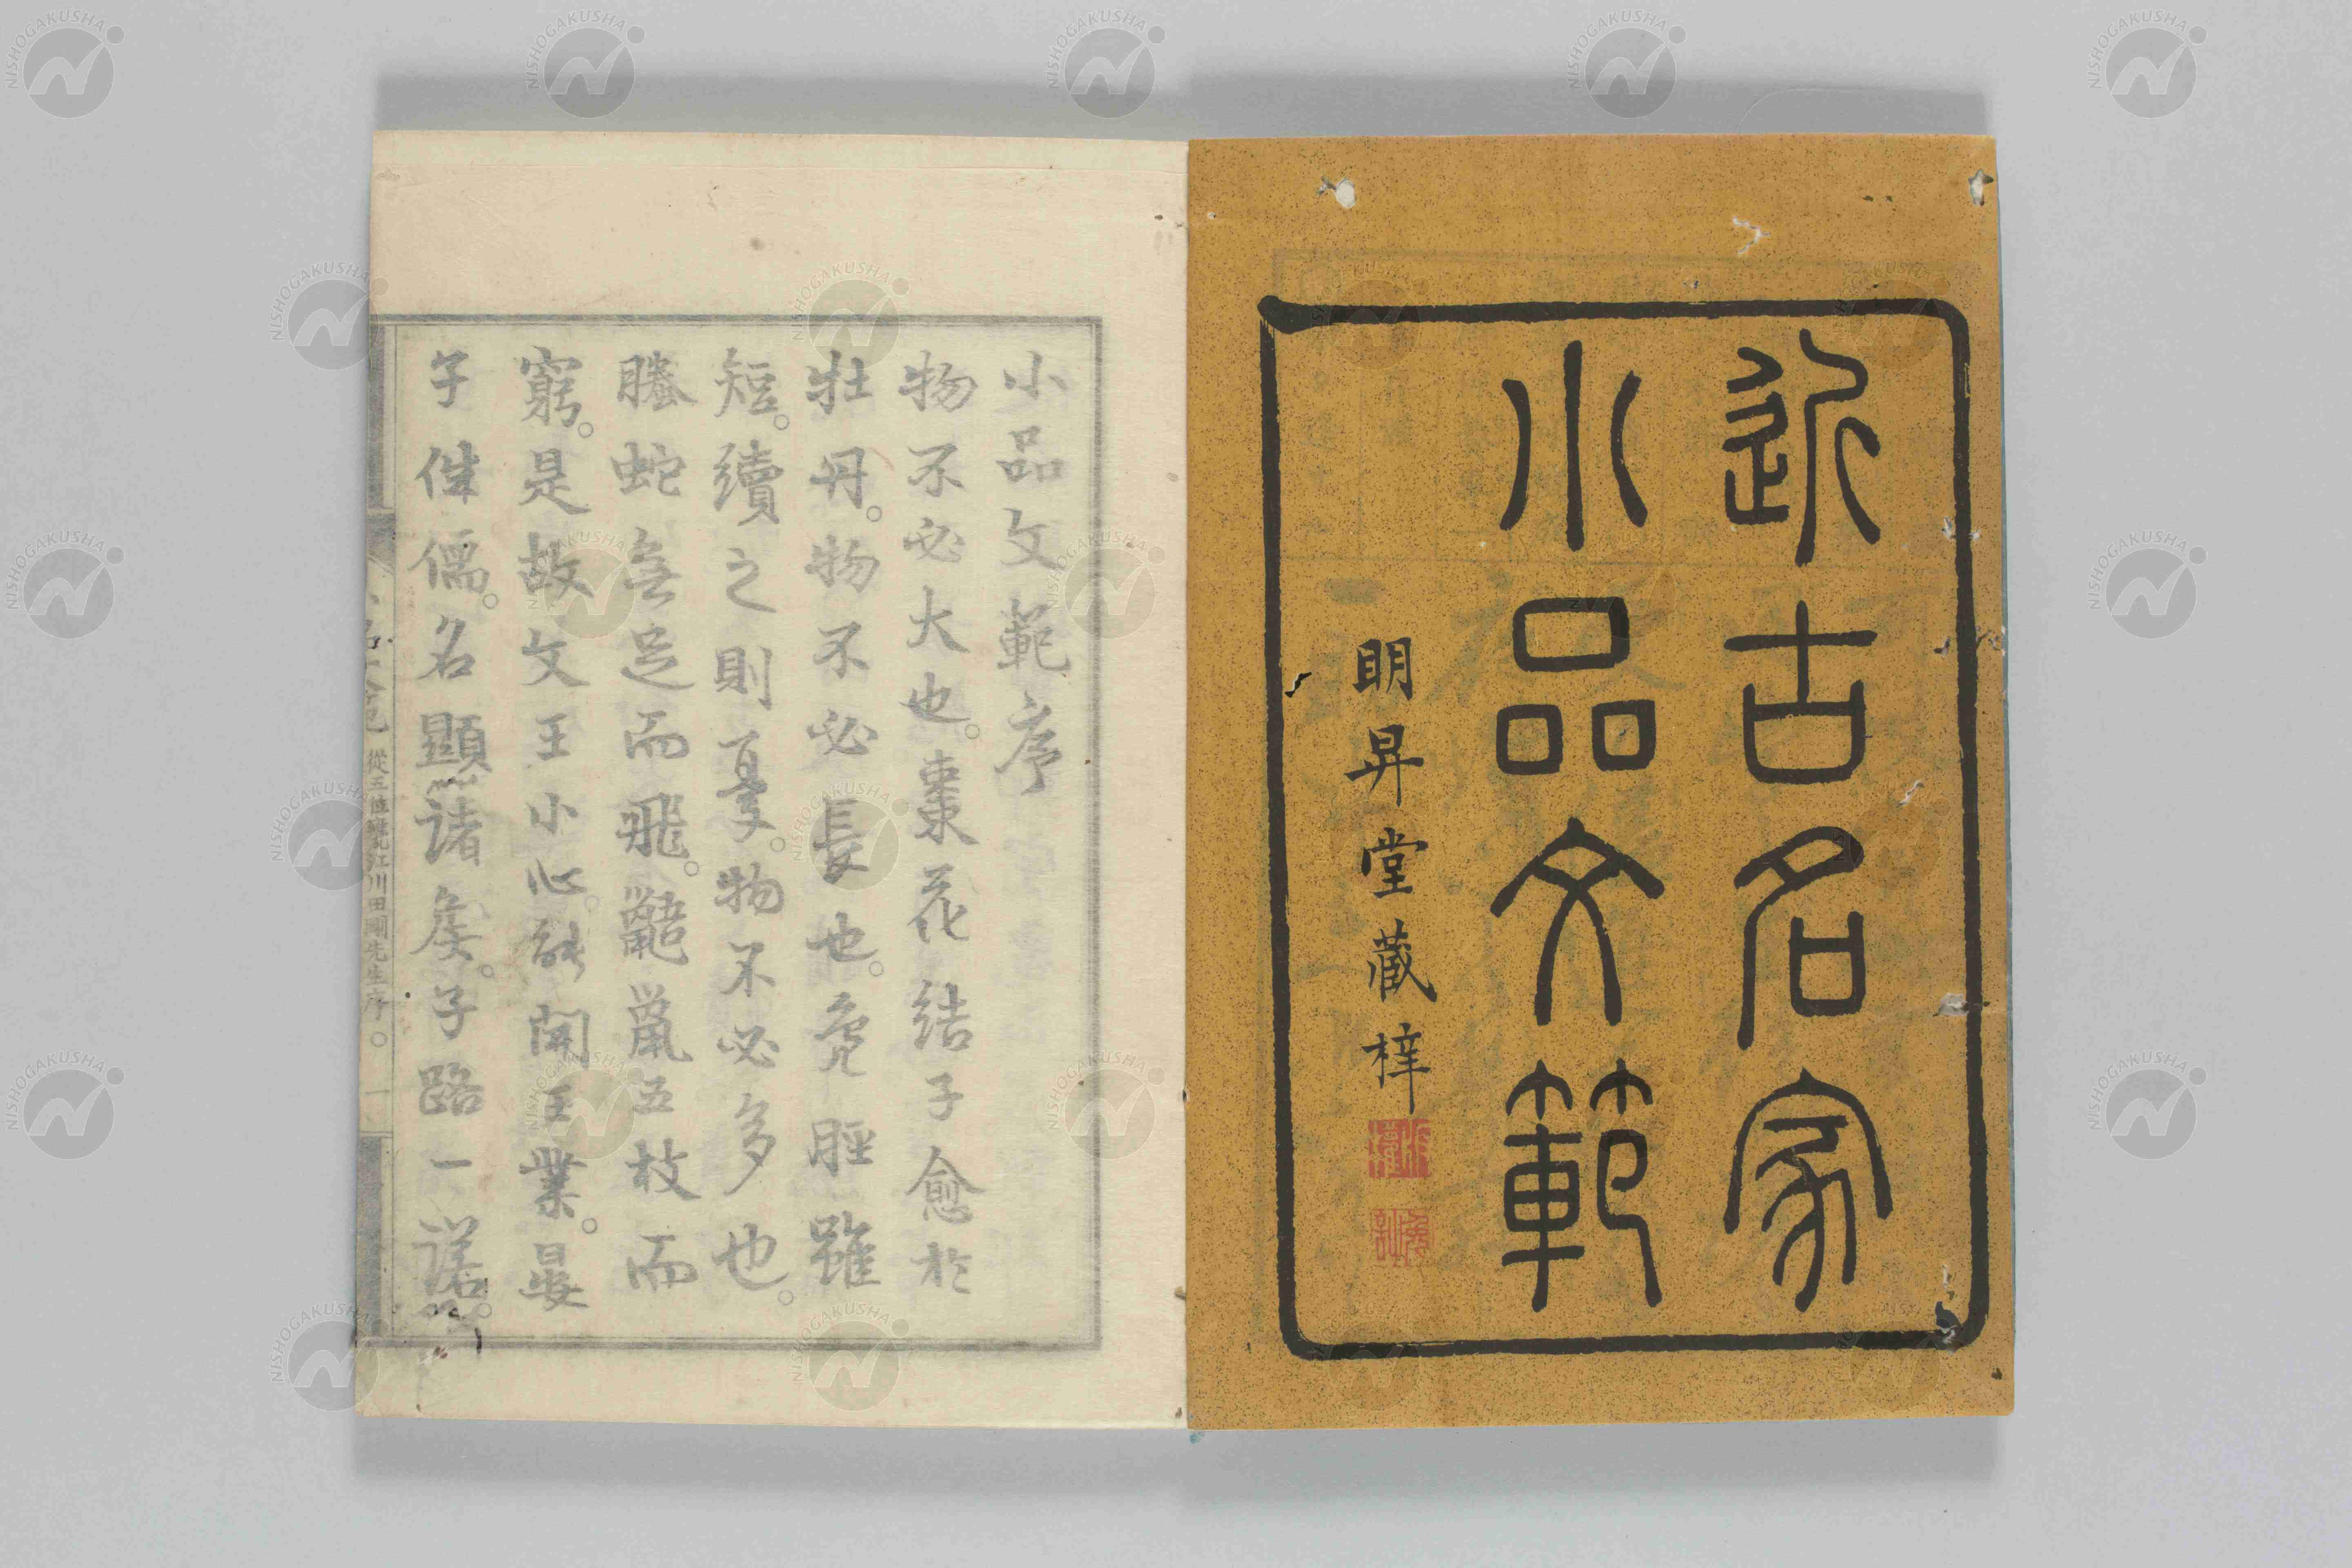 近古名家
小品文範
明昇堂藏梓
小品文範序
物不必大也。棗花結子愈於
牡丹。物不必長也。鳧脛雖
短。續之則憂。物不必多也。
螣蛇無足而飛。鼯鼠五枝而
窮。是故文王小心。能開王業。晏
子侏儒。名顯諸矦。子路一諾。
從五位甕江川田剛先生序
NISHOGAKUSHA